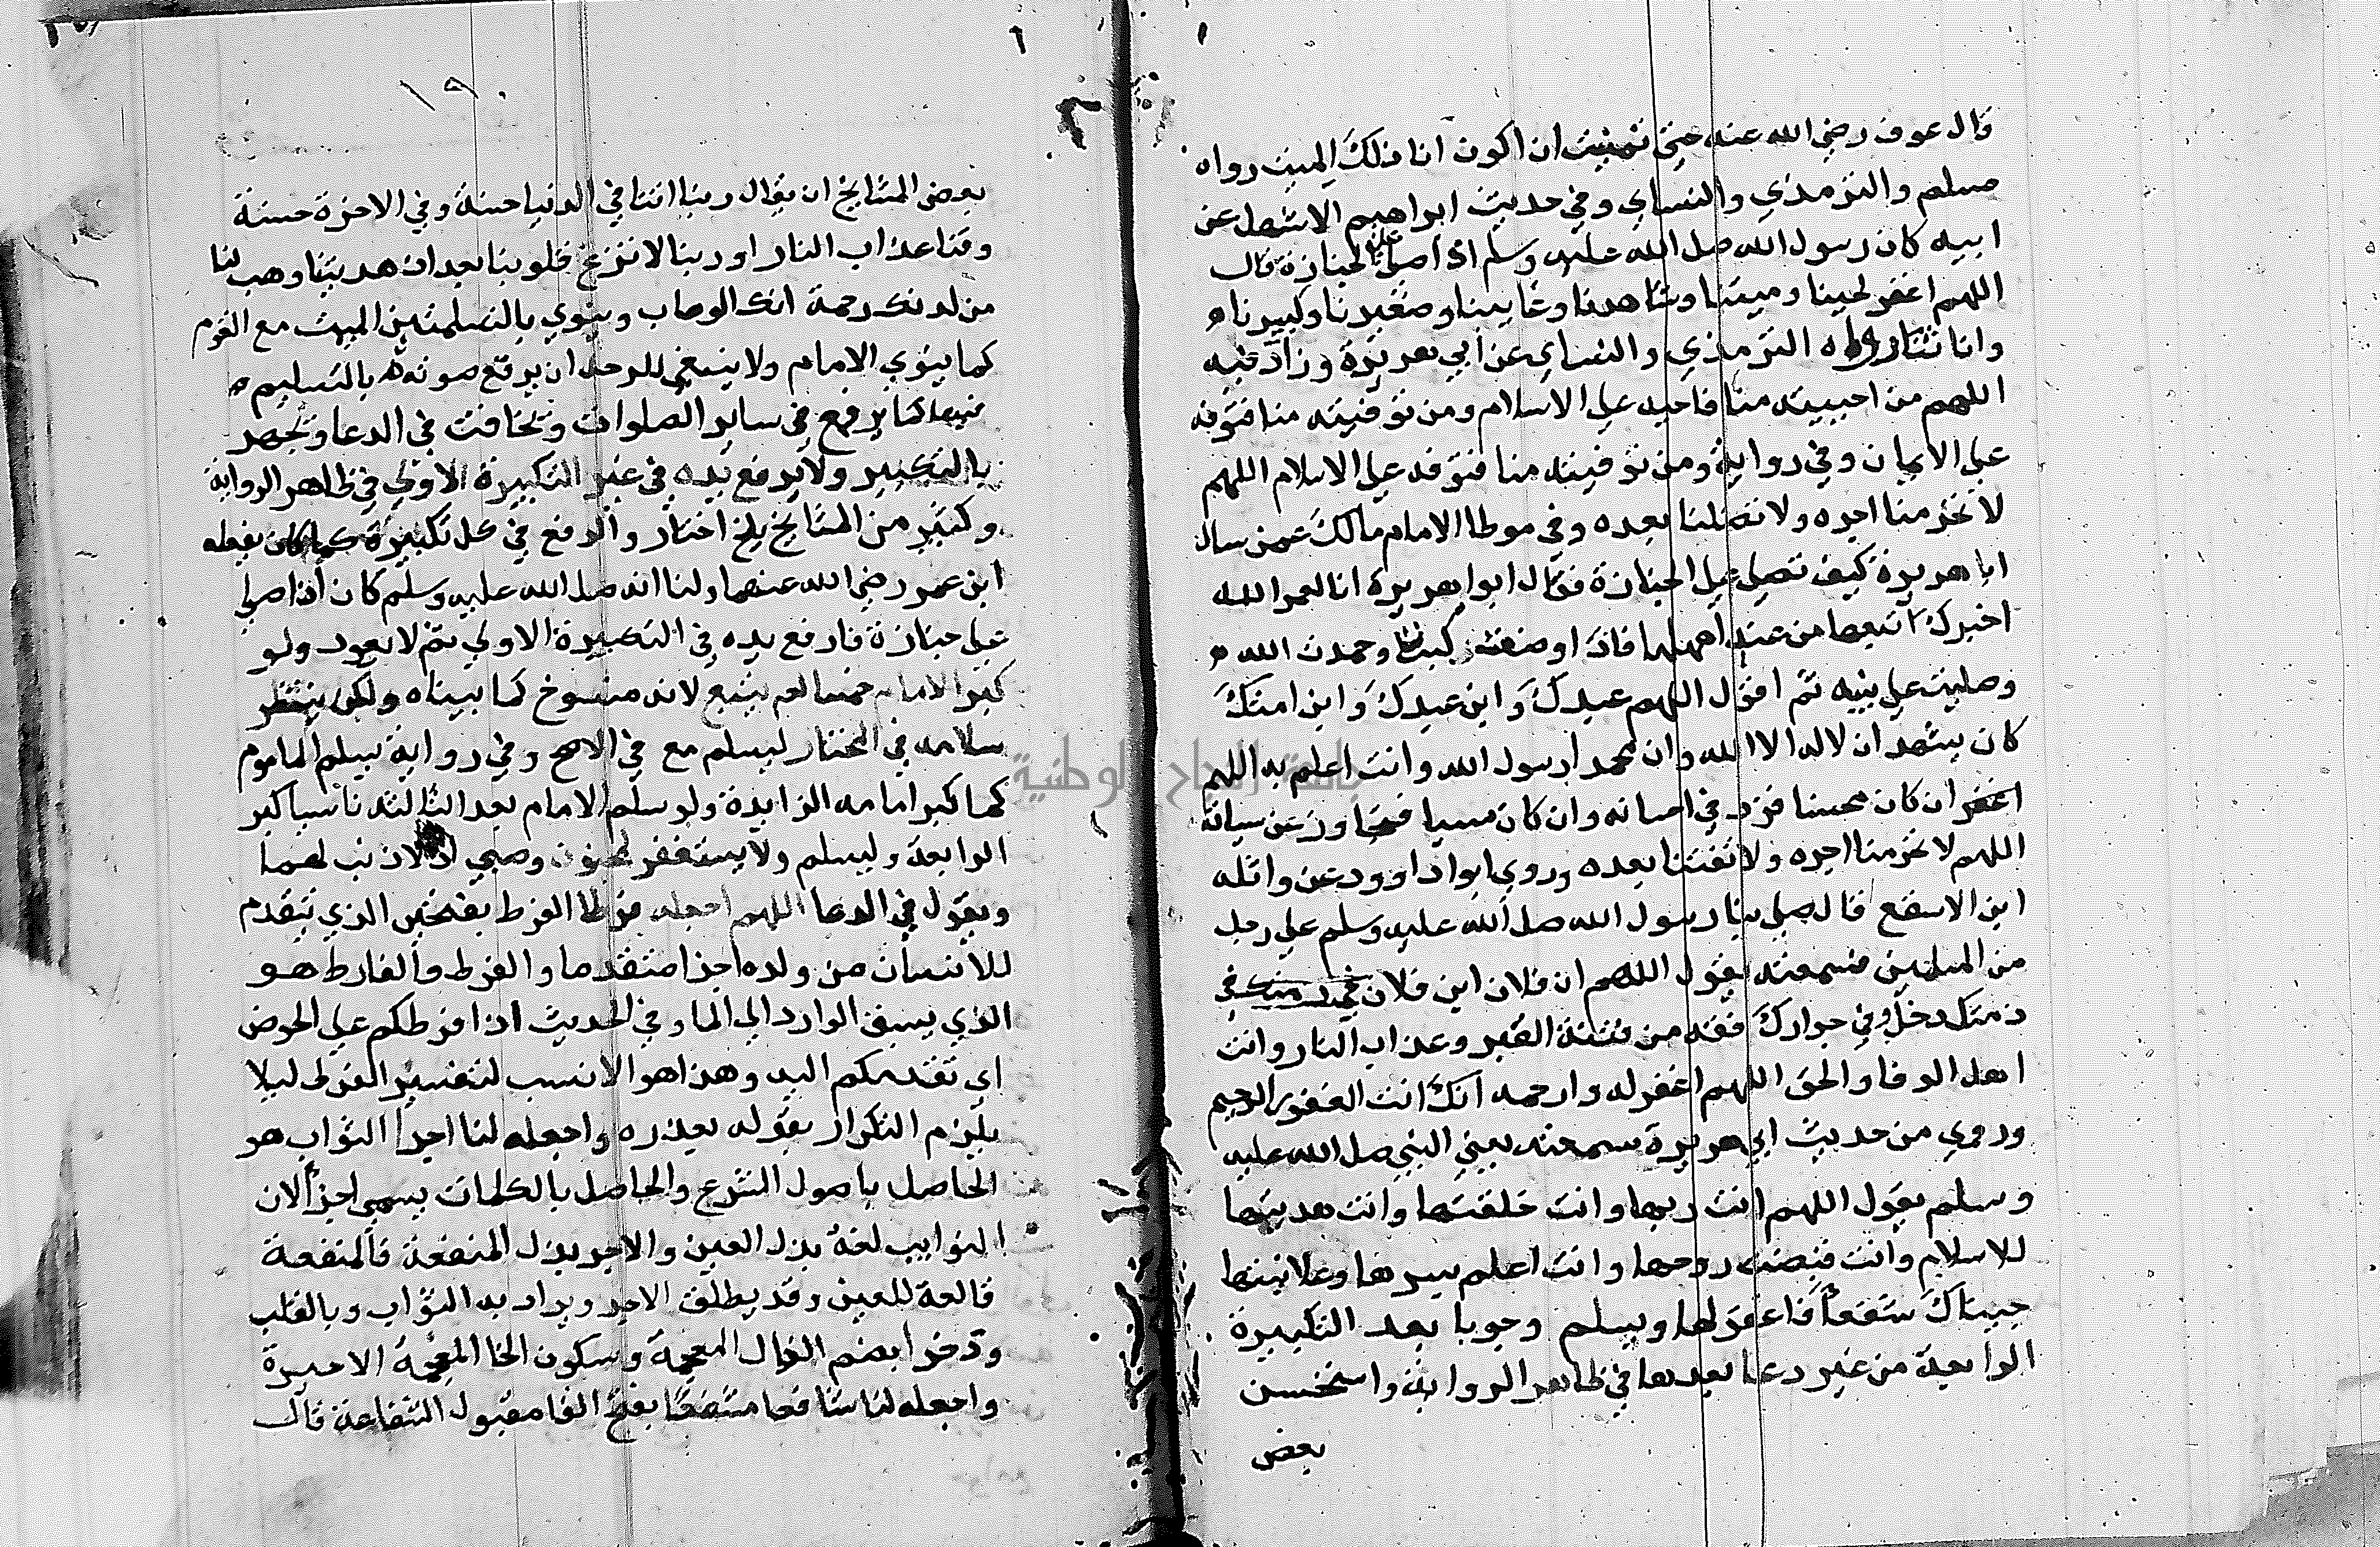 قال عوف رضي الله عنه حتى تمنيت ان اكون انا ذلك الميت رواه
مسلم والترمذي والنساي وفي حديث ابراهيم الاشهل عن
ابيه كان رسول الله صلى الله عليه وسلم اذا صلى على الجنازة قال
اللهم اغفر لحينا وميتنا وشاهدنا وغايبنا وصغيرنا وكبيرنا
وانثانا رواه الترمذي والنساي عن ابي هريرة وزاد فيه
اللهم من احييته منا فاحيه على الاسلام ومن توفيته منا فتوفه
على الايمان وفي رواية ومن توفيته منا فتوفه على الاسلام اللهم
لا تحرمنا اجره ولا تضلنا بعده وفي موطا الامام مالك عمن سال
ابا هريرة كيف تصلي على الجنازة فقال ابوا هريرة انا لعمر الله
اخبرك اتبعها من عند اهلها فاذا وضعت كبرت وحمدت الله
وصليت على نبيه ثم اقول اللهم عبدك وابن عبدك وابن امتك
كان يشهد ان لا اله الا الله وان محمدا رسول الله وانت اعلم به اللهم
اغفر ان كان محسنا فزد في احسانه وان كان مسيا فتجاوز عن سياته
اللهم لا تحرمنا اجره ولا تفتنا بعده وروى ابوا داوود عن واثله
ابن الاسقع قال صلى بنا رسول الله صلى الله عليه وسلم على رجل
من المسلمين فسمعته يقول اللهم ان فلان ابن فلان في
ذمتك دخل وفي جوارك فقه من فتنة القبر وعذاب النار وانت
اهل الوفا والحق اللهم اغفر له وارحمه انك انت الغفور الرحيم
وروي من حديث ابي هريرة سمعته يعني النبي صلى الله عليه
وسلم يقول اللهم انت ربها وانت خلقتها وانت هديتها
للاسلام وانت قبضت روحها وانت اعلم بسرها وعلانيتها
جيناك شفعا فاغفر لها ويسلم وجوبا بعد التكبيرة
الرابعة من غير دعا بعدها في ظاهر الرواية واستحسن
بعض
١٩٠
بعض المشايخ ان يقال ربنا اتنا في الدنيا حسنة وفي الاخرة حسنة
وقنا عذاب النار او ربنا لا تزغ قلوبنا بعد اذ هديتنا وهب لنا
من لدنك رحمة انك الوهاب وينوي بالتسلمتين الميت مع القوم
كما ينوي الامام ولا ينبغي للرجل ان يرفع صوته بالتسليم
فيها كما يرفع في ساير الصلوات وتخافت في الدعا وتجهر
بالتكبير ولا يرفع يديه في غير التكبيرة الاولى في ظاهر الرواية
وكثير من المشايخ بلخ اختاروا الرفع في كل تكبيرة كما كان يفعله
ابن عمر رضي الله عنهما ولنا انه صلى الله عليه وسلم كان اذا صلى
على جنازة فارفع يده في التكبيرة الاولى ثم لا يعود ولو
كبر الامام خمسا لم يتبع لانه منسوخ كما بيناه ولكن ينتظر
سلامه في المختار ليسلم مع في الاصح وفي رواية يسلم الماموم
كما كبر امامه الزايدة ولو سلم الامام بعد الثالثة ناسيا كبر
الرابعة وليسلم ولا يستغفر لمجنون وصبي اذ لا ذنب لهما
ويقول في الدعا اللهم اجعله فرطا الفرط بفتحتين الذي يتقدم
للانسان من ولده اجرا متقدما والفرط والفارط هو
الذي يسبق الوارد الى الما وفي الحديث انا فرطكم على الحوض
اي تقدمكم اليه وهذا هو الانسب لتفسير الفرط ليلا
يلزم التكرار بقوله بعذره واجعله لنا اجرا الثواب هو
الحاصل باصول الشرع والحاصل بالكلمات يسمى اجرا لان
الثواب لغة بدل العين والاجر بدل المنفعة فالمنفعة
فالعة للعين وقد يطلق الاجر ويراد به الثواب وبالقلب
وذخرا بضم الذال المعجمة وسكون الخا المعجمة الاخيرة
واجعله لنا شافعا مشفعا بفتح الفا مقبول الشفاعة قال
جامعة النجاح الوطنية